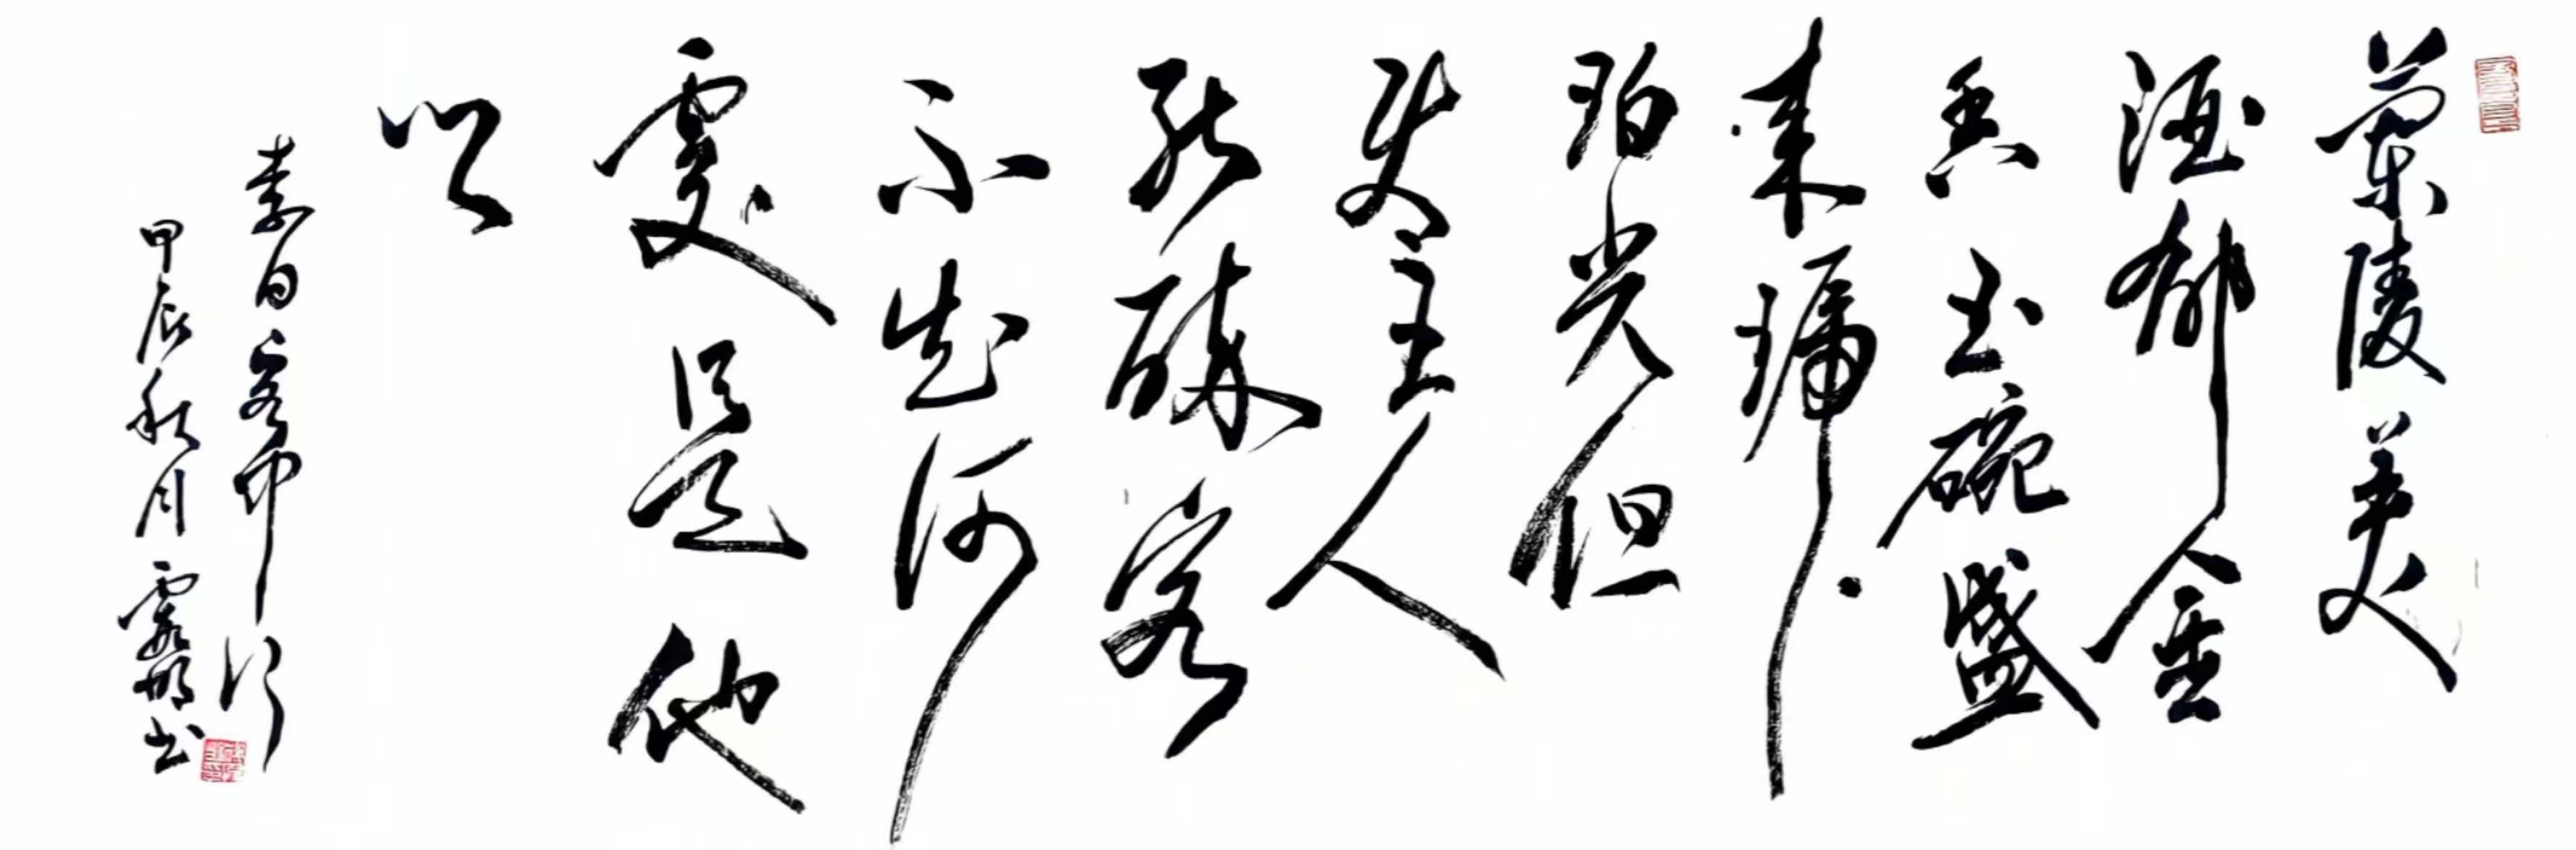 蘭陵美
酒郁金
香玉碗盛
来琥
珀光但
使主人
能醉客
不知何
處是他
鄉
李白客中行
甲辰秋月